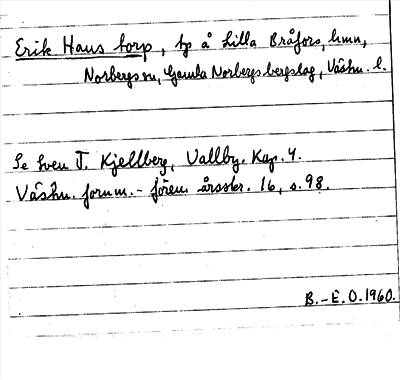 Erik Hans torp, tp å Lilla Bråfors, hmn,
Norbergs sn, Gamla Norbergs bergslag, Västm. l.
Se Sven T. Kjellberg, Vallby. Kap. 4.
Västm. fornm.-fören. årsskr. 16, s. 98.
B.-E. O. 1960.